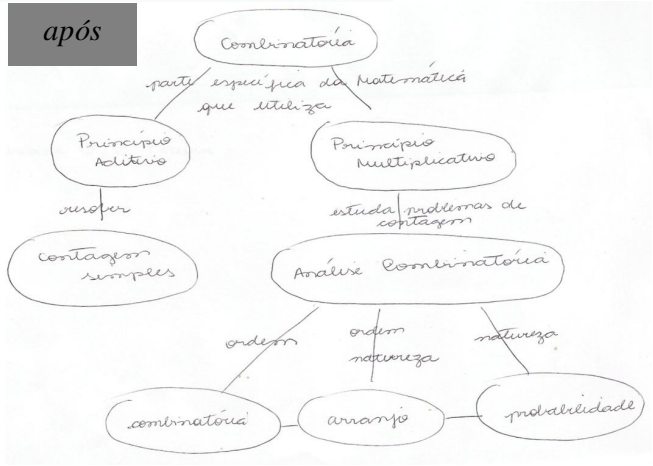 após
Combinatória
parte específica da Matemática
que utiliza
Princípio
Aditivo
Princípio
Multiplicativo
resolver
estuda problemas de
contagem
contagem
simples
Análise Combinatória
ordem
ordem
natureza
natureza
combinatória
arranjo
probabilidade